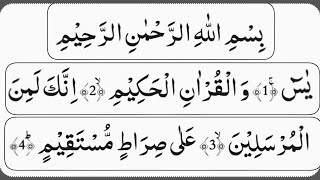 بِسْمِ اللهِ الرَّحْمٰنِ الرَّحِيْمِ
يٰسٓ ﴿1﴾ۚ وَالْقُرْاٰنِ الْحَكِيْمِ ﴿2﴾ۙ اِنَّكَ لَمِنَ
الْمُرْسَلِيْنَ ﴿3﴾ۙ عَلٰى صِرَاطٍ مُّسْتَقِيْمٍ ﴿4﴾ؕ